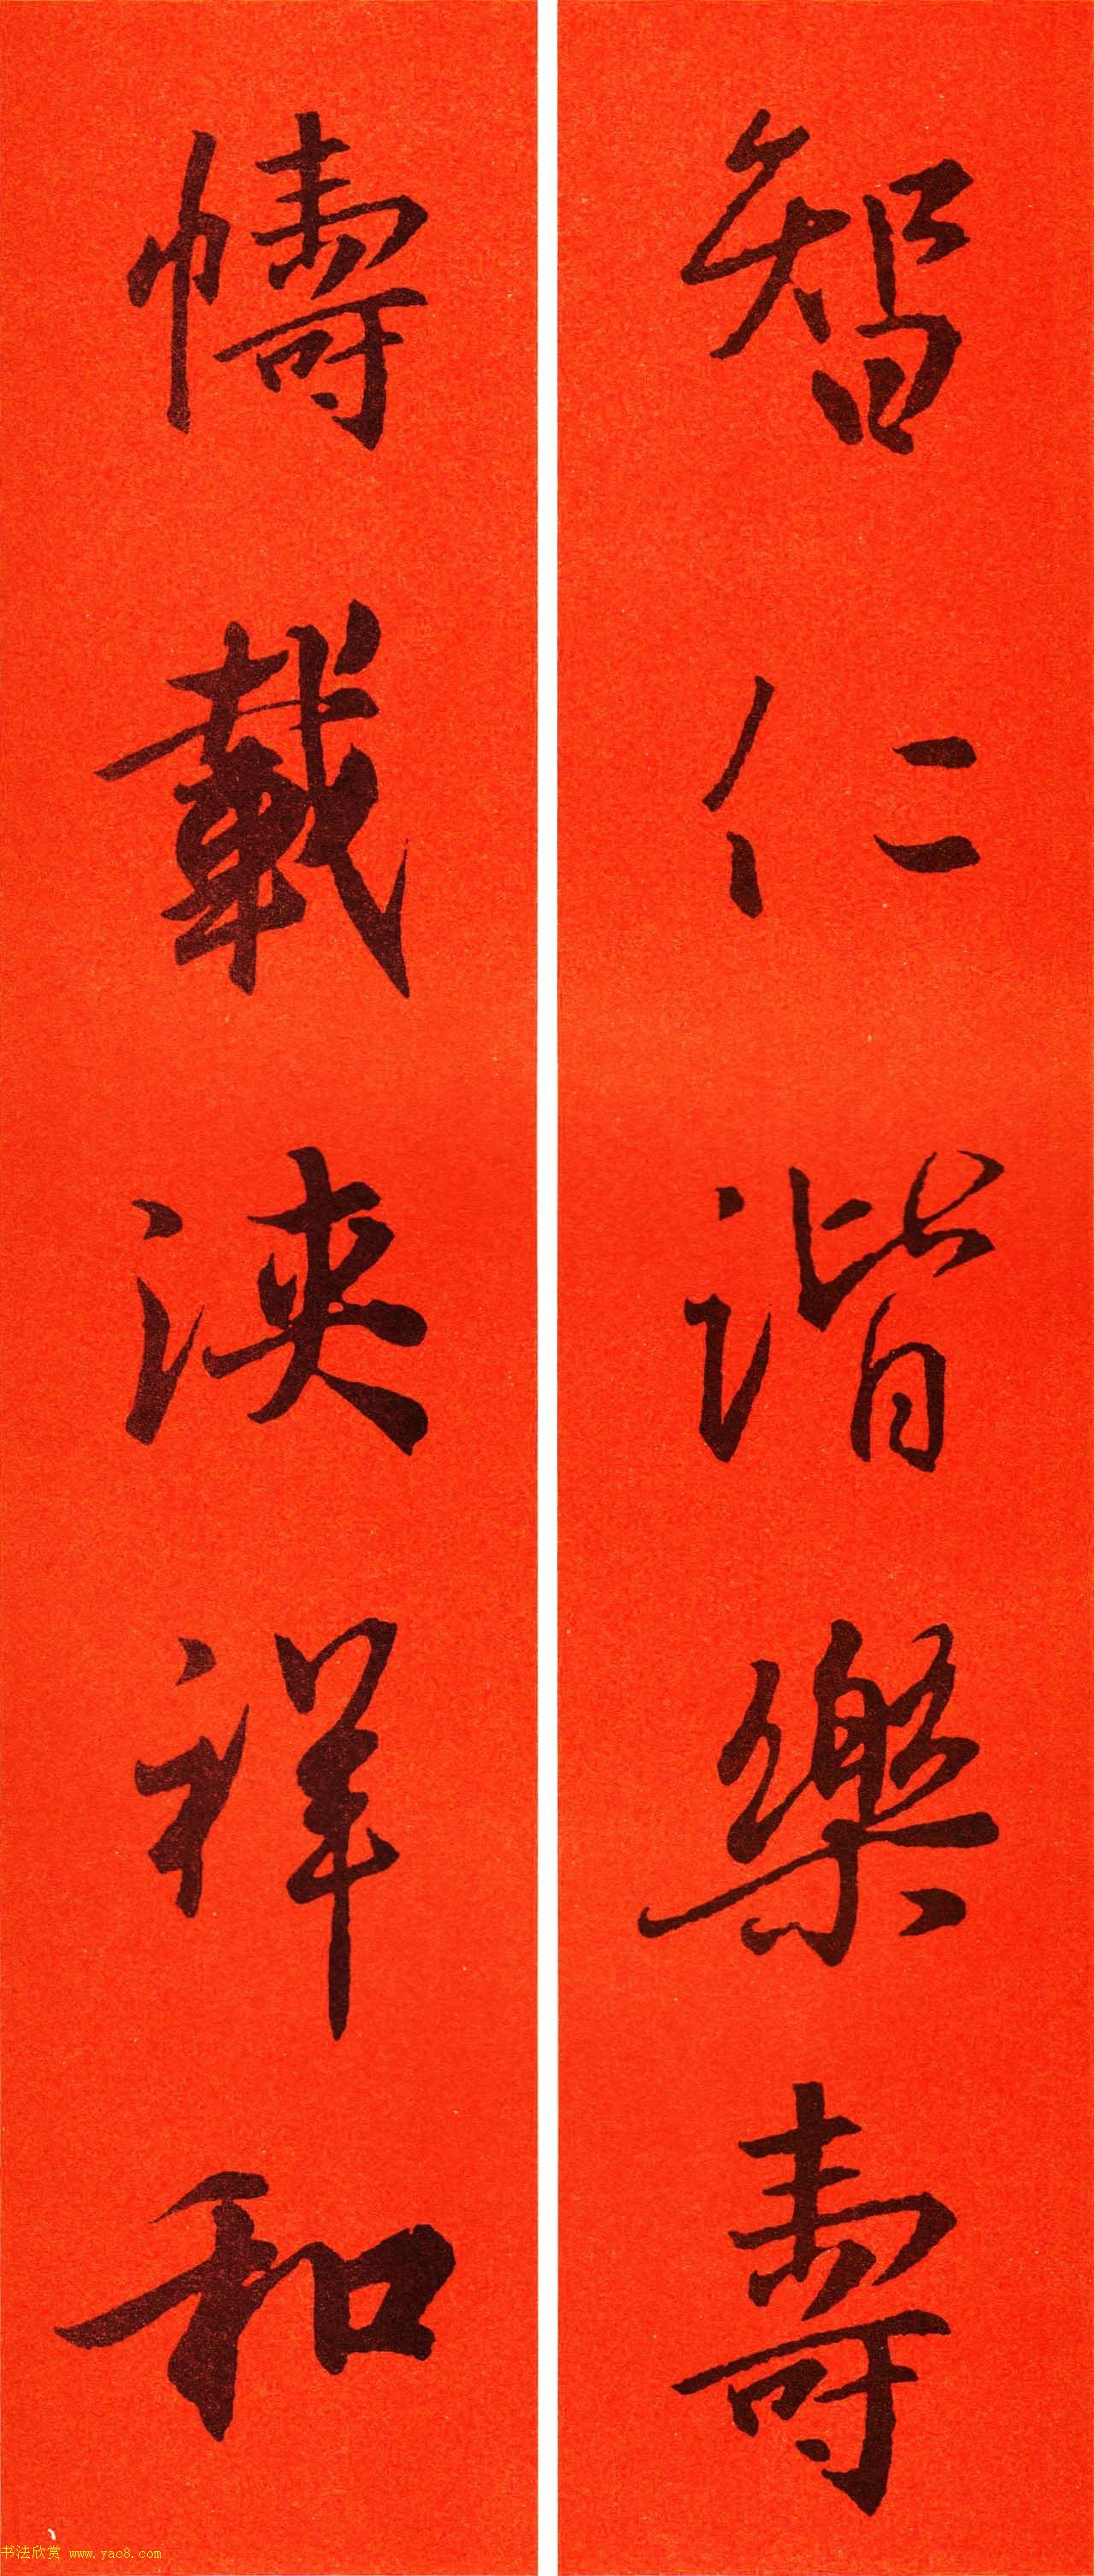 智仁諧樂壽
幬載浹祥和
书法欣赏 www.yac8.com